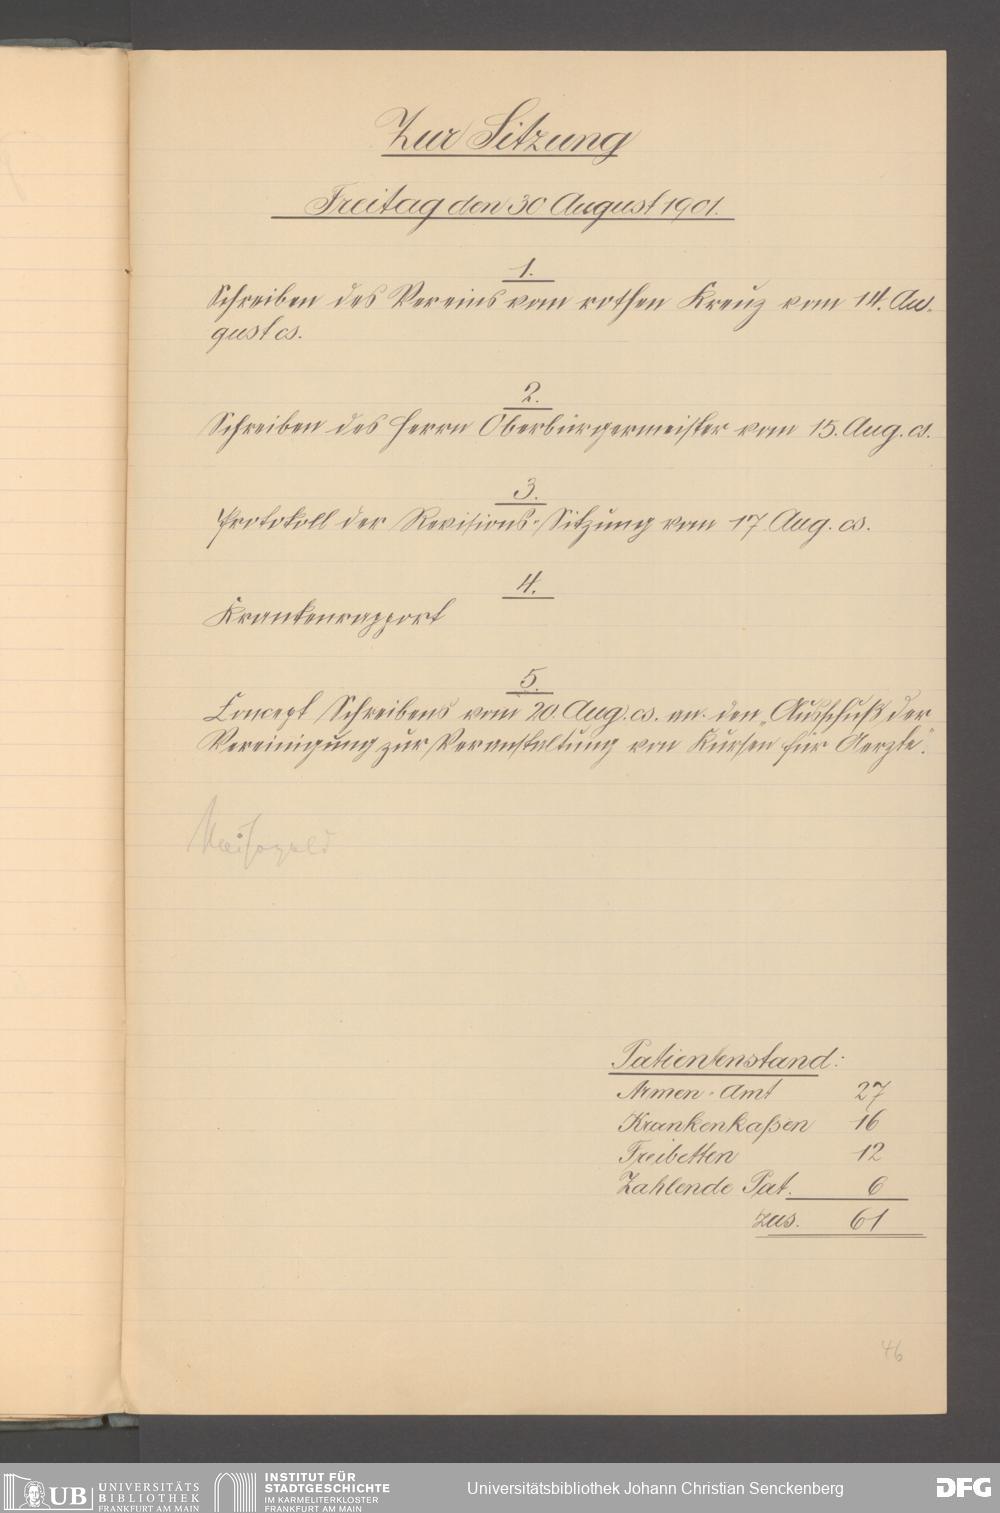 Zur Sitzung
Freitag den 30 August 1901.
1.
Schreiben des Vereins vom rothen Kreuz vom 14. Au-
gust cs.
2.
Schreiben des Herrn Oberbürgermeister vom 15. Aug. cs.
3.
Protokoll der Revisions-Sitzung vom 17 Aug. cs.
4.
Krankenrapport
5.
Concept Schreibens vom 20. Aug. cs. an den „Ausschuß der
Vereinigung zur Veranstaltung von Kursen für Aerzte“.
Patientenstand:
Armen-Amt 27
Krankenkaßen 16
Freibetten 12
Zahlende Pat. 6
zus. 61
46
UB UNIVERSITÄTS
BIBLIOTHEK
FRANKFURT AM MAIN
INSTITUT FÜR
STADTGESCHICHTE
IM KARMELITERKLOSTER
FRANKFURT AM MAIN
Universitätsbibliothek Johann Christian Senckenberg
DFG